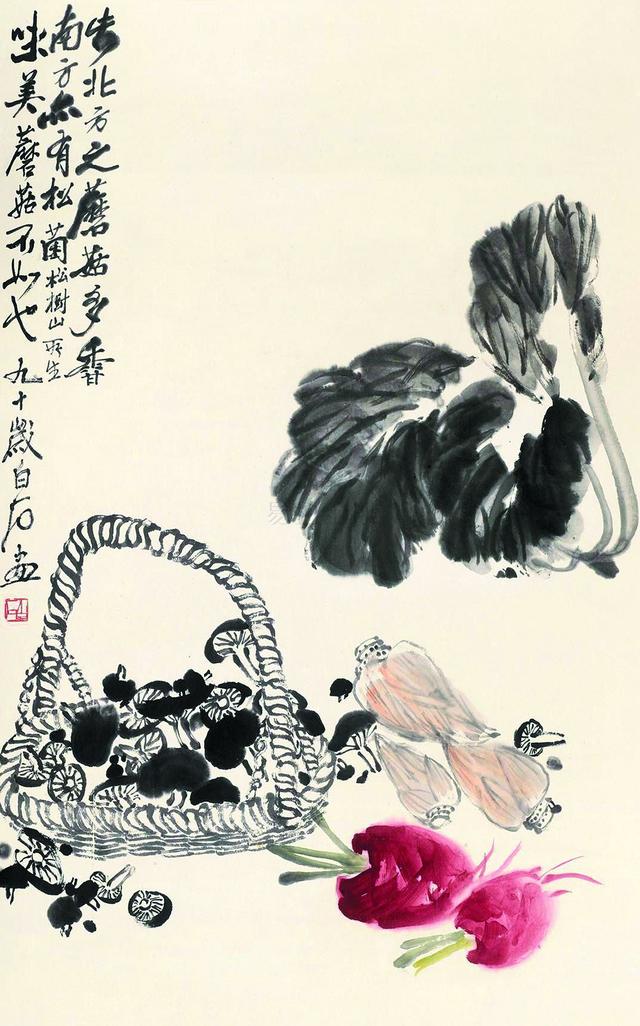 北方之蘑菇多香
南方亦有松菌松樹山所生
味美蘑菇不如也 九十歲白石画